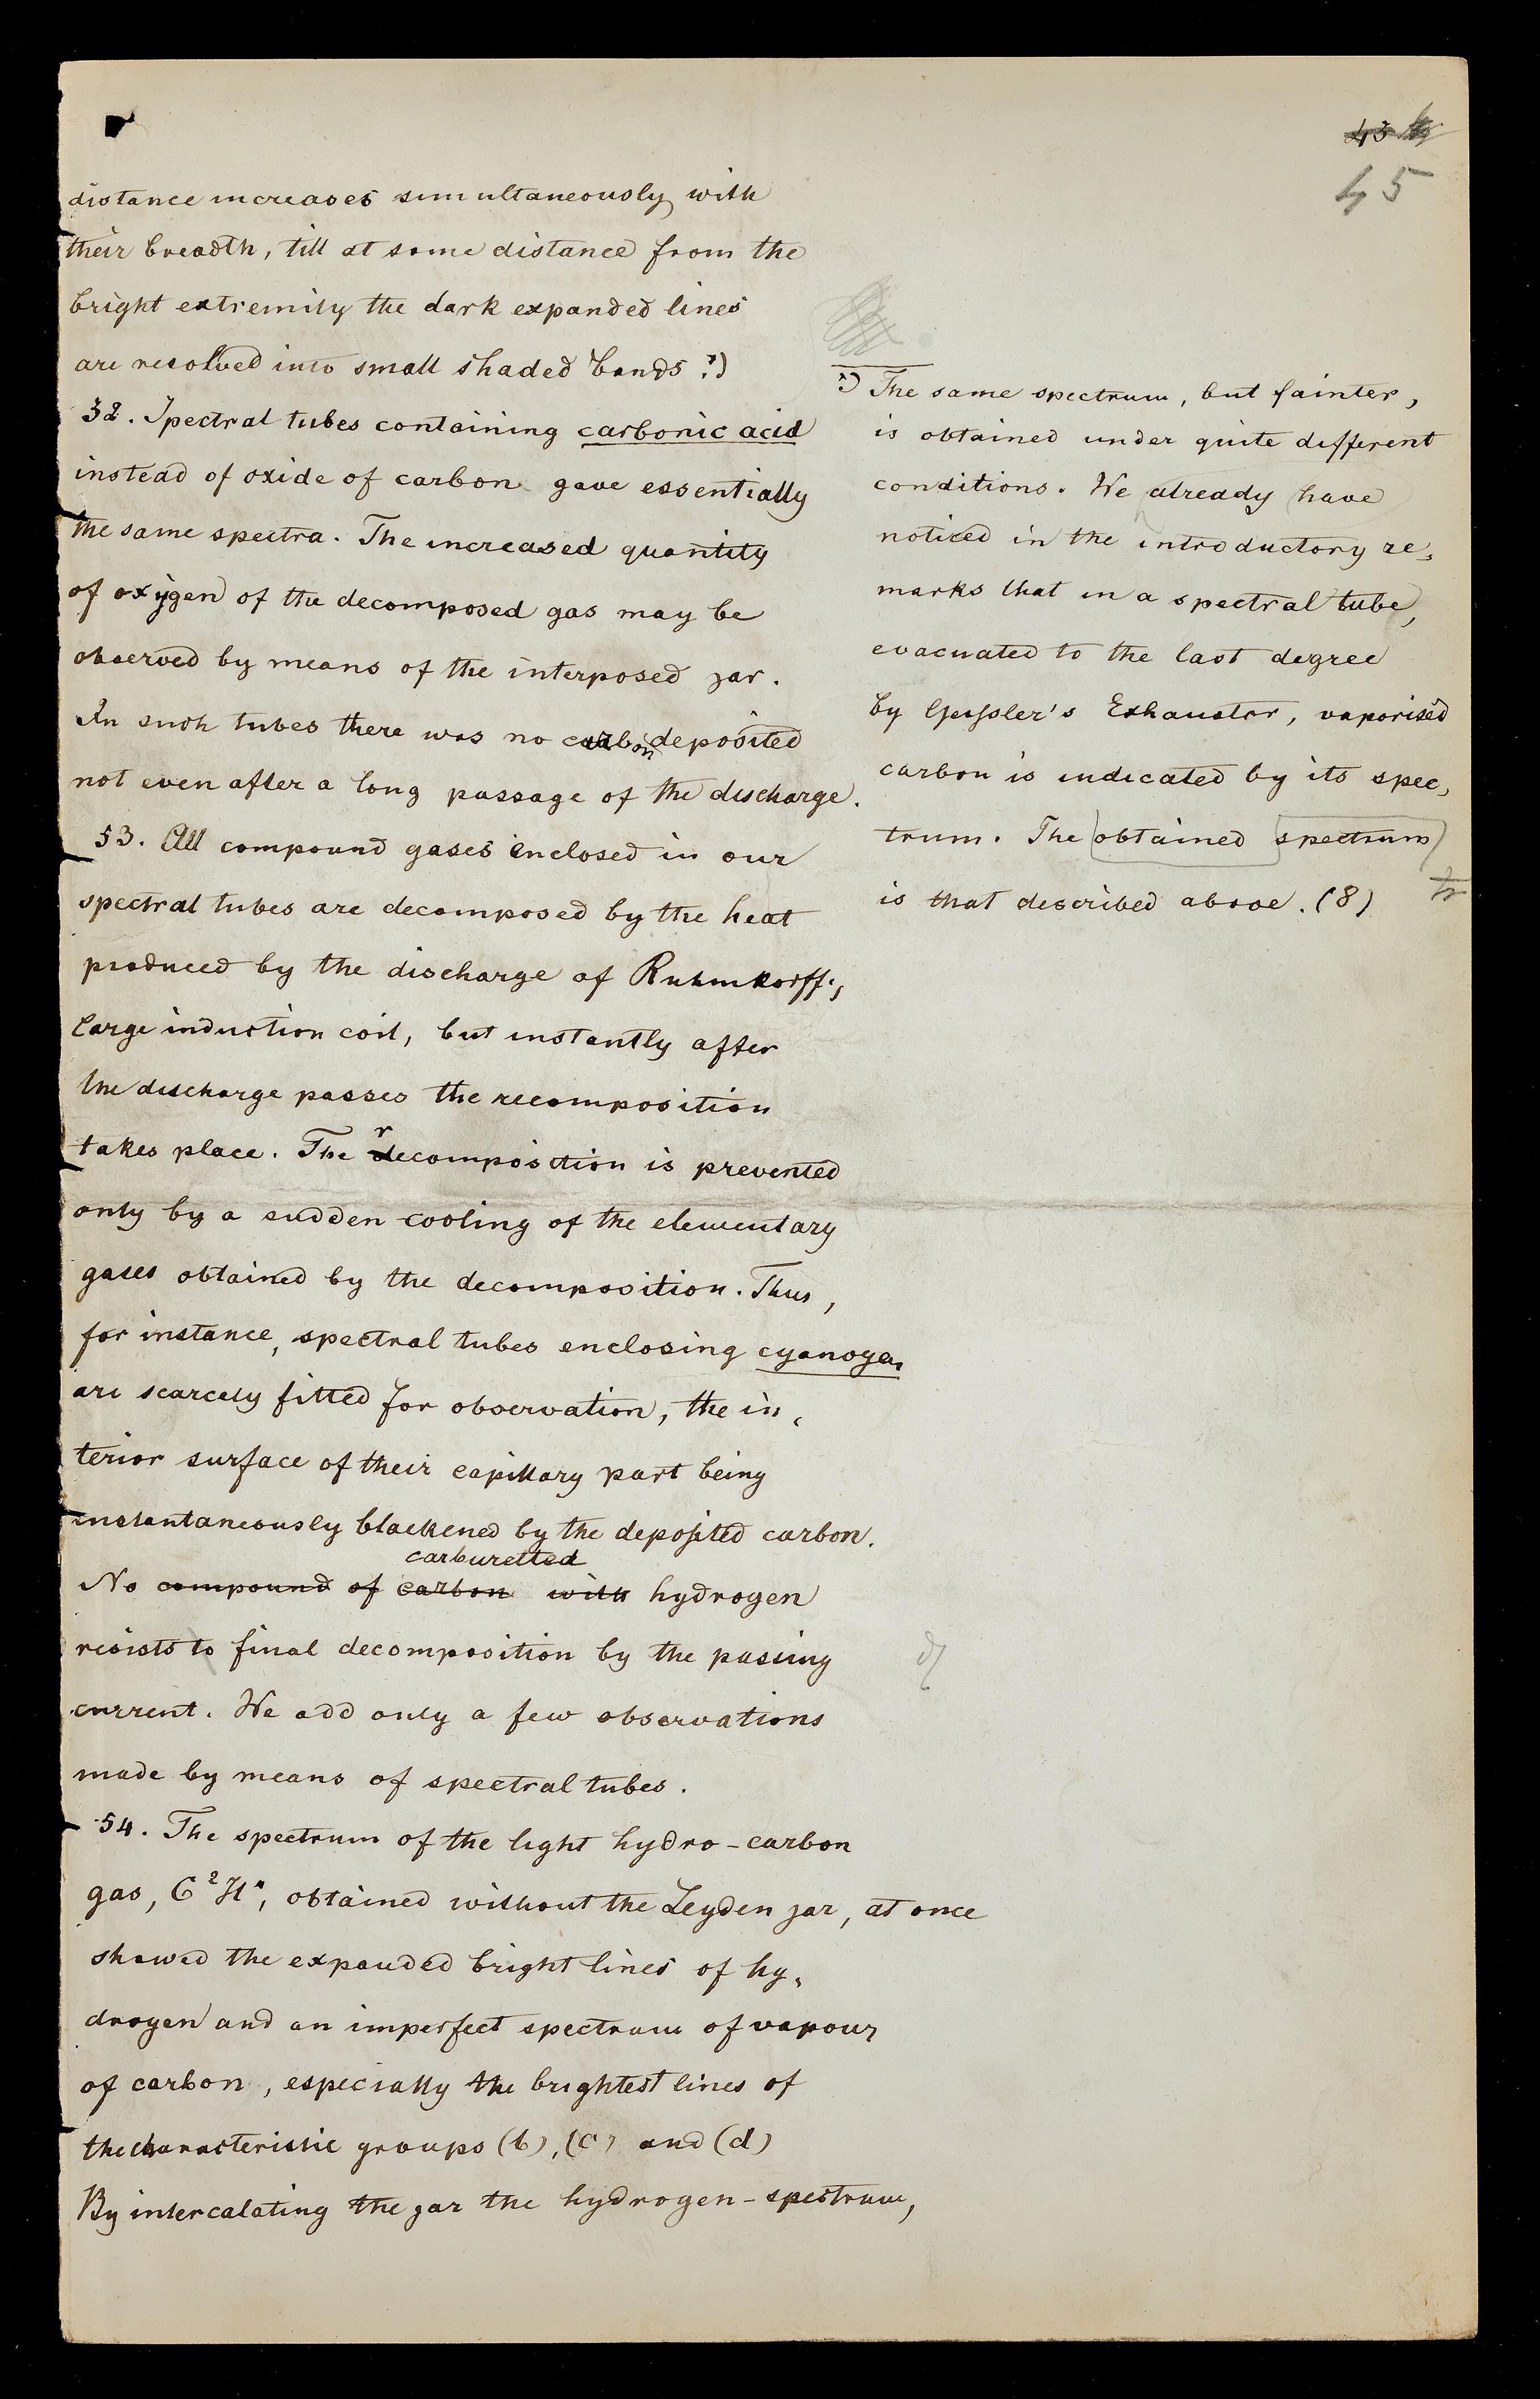 45
distance increases simultaneously with
their breadth, till at some distance from the
bright extremity the dark expanded lines
are resolved into small shaded bands.*)
32. Spectral tubes containing carbonic acid
instead of oxide of carbon gave essentially
the same spectra. The increased quantity
of oxygen of the decomposed gas may be
observed by means of the interposed jar.
In such tubes there was no carbon deposited
not even after a long passage of the discharge.
53. All compound gases enclosed in our
spectral tubes are decomposed by the heat
produced by the discharge of Ruhmkorff's
large induction coil, but instantly after
the discharge passes the recomposition
takes place. The recomposition is prevented
only by a sudden cooling of the elementary
gases obtained by the decomposition. Thus,
for instance, spectral tubes enclosing cyanogen
are scarcely fitted for observation, the in,
terior surface of their capillary part being
instantaneously blackened by the deposited carbon.
carburetted
No compound of carbon with hydrogen
resists to final decomposition by the passing
current. We add only a few observations
made by means of spectral tubes.
54. The spectrum of the light hydro-carbon
gas, C²H⁴, obtained without the Leyden jar, at once
showed the expanded bright lines of hy,
drogen and an imperfect spectrum of vapour
of carbon, especially the brightest lines of
the characteristic groups (b), (c) and (d)
By intercalating the jar the hydrogen-spectrum,
*) The same spectrum, but fainter,
is obtained under quite different
conditions. We already have
noticed in the introductory re,
marks that in a spectral tube,
evacuated to the last degree
by Geissler's Exhauster, vaporised
carbon is indicated by its spec,
trum. The obtained spectrum
is that described above. (8)
tr